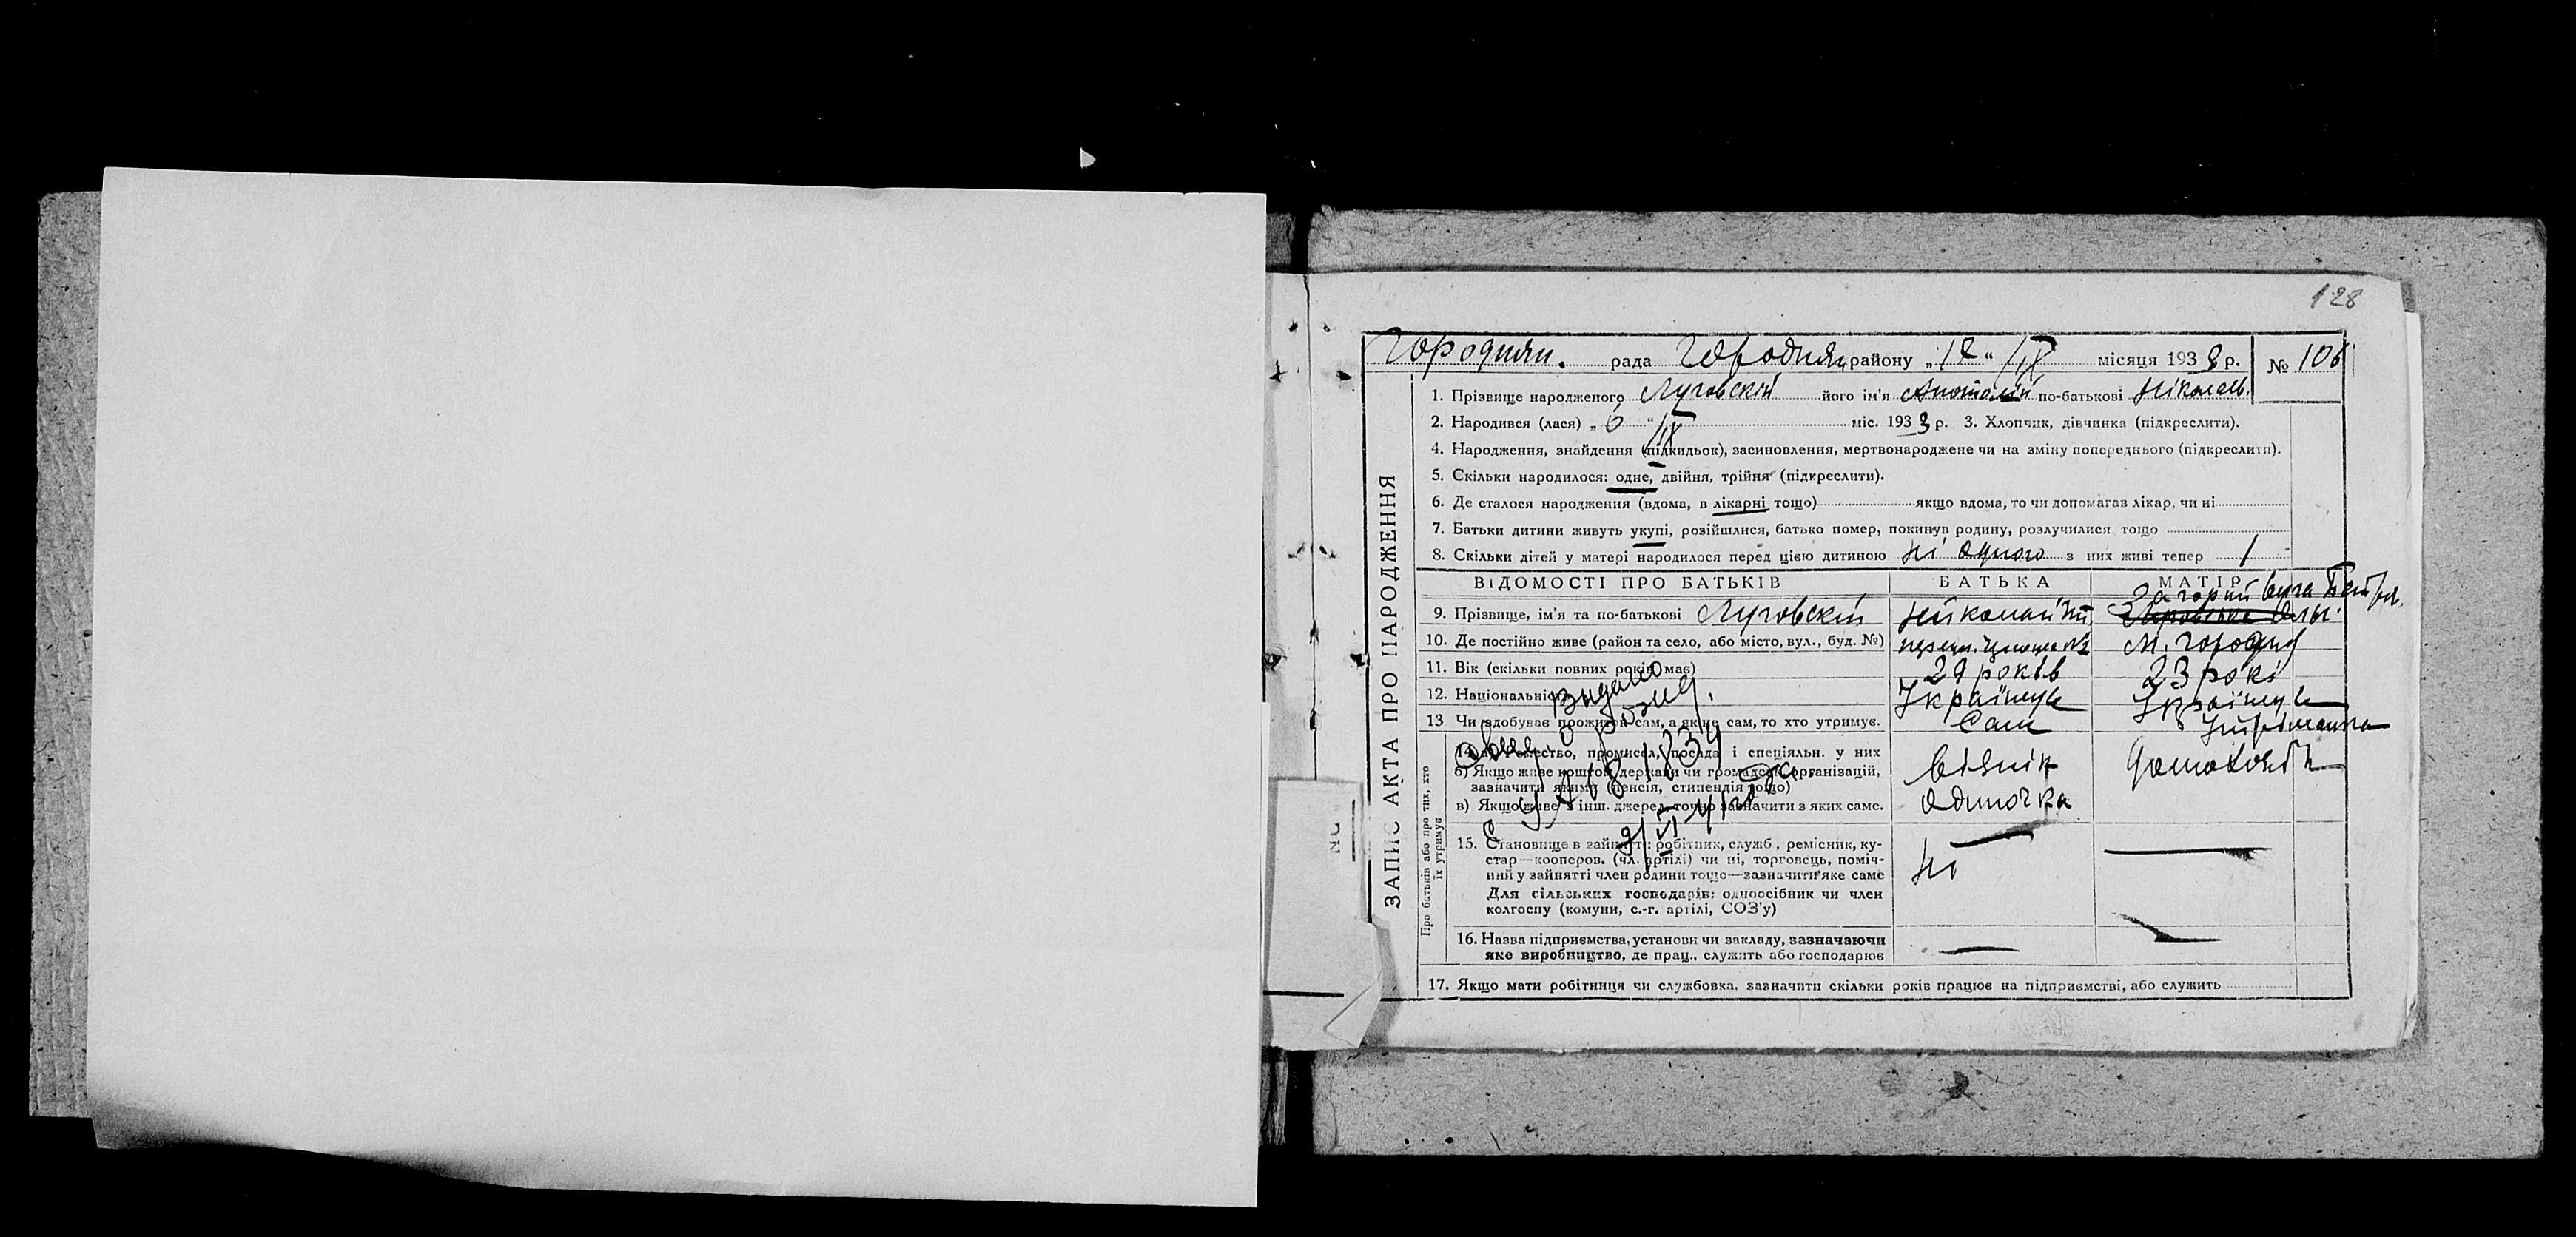 128
Городнян. рада Городнян району „12“ IX місяця 1933 р. № 106
ЗАПИС АКТА ПРО НАРОДЖЕННЯ
1. Прізвище народженого Луговскій його ім'я Анатолій по-батькові Ніколаєв.
2. Народився (лася) „6“ IX міс. 1933 р. 3. Хлопчик, дівчинка (підкреслити).
4. Народження, знайдення (підкидьок), засиновлення, мертвонароджене чи на зміну попереднього (підкреслити).
5. Скільки народилося: одне, двійня, трійня (підкреслити).
6. Де сталося народження (вдома, в лікарні тощо) якщо вдома, то чи допомагав лікар, чи ні
7. Батьки дитини живуть укупі, розійшлися, батько помер, покинув родину, розлучилися тощо
8. Скільки дітей у матері народилося перед цією дитиною ні одного з них живі тепер 1
ВІДОМОСТІ ПРО БАТЬКІВ БАТЬКА МАТІР
9. Прізвище, ім'я та по-батькові Луговскій
10. Де постійно живе (район та село, або місто, вул., буд. №) м. Городня
11. Вік (скільки повних років має) 29 років 23 рокі
12. Національність Українець Українець
13. Чи здобуває прожиток сам, а як не сам, то хто утримує. Сам
Видано
Про батьків або про тих, хто їх утримує
14. а) Ремество, промисел, посада і спеціяльн. у них візнік
б) Якщо живе коштом держави чи громадськ. організацій,
зазначити якими (пенсія, стипендія тощо)
в) Якщо живе з інш. джерел, точно зазначити з яких саме. одиночка
15. Становище в зайнятті: робітник, служб., ремісник, ку-
стар—кооперов. (чл. артілі) чи ні, торговець, поміч-
ний у зайнятті член родини тощо—зазначити яке саме ні
Для сільських господарів: одноосібник чи член
колгоспу (комуни, с.-г. артілі, СОЗ'у)
16. Назва підприємства, установи чи закладу, зазначаючи
яке виробництво, де прац., служить або господарює
17. Якщо мати робітниця чи службовка, зазначити скільки років працює на підприємстві, або служить